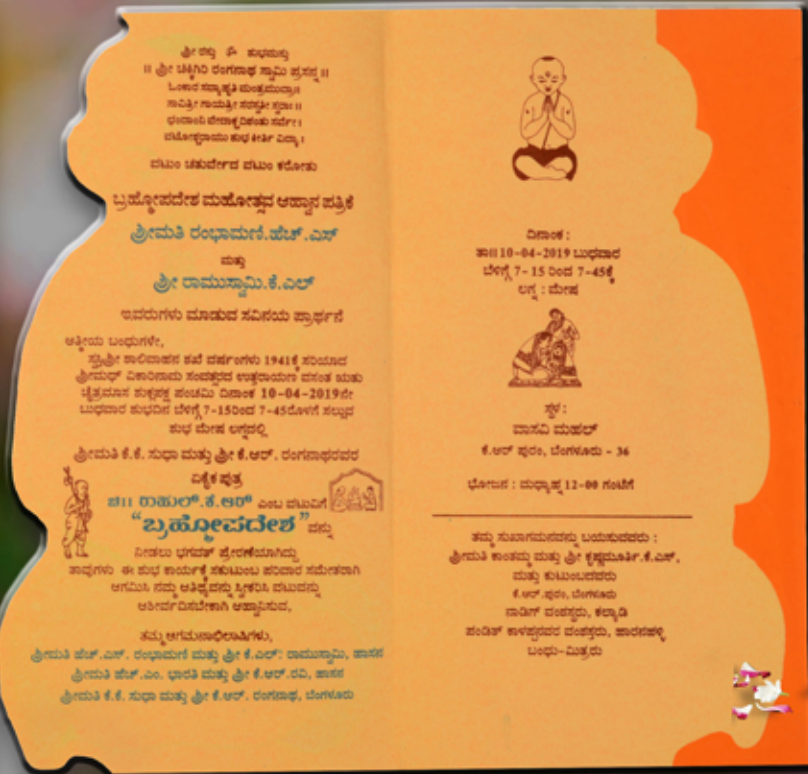 ಶ್ರೀ ರಸ್ತು ಶುಭಮಸ್ತು
॥ ಶ್ರೀ ಚಿಕ್ಕಗಿರಿ ರಂಗನಾಥ ಸ್ವಾಮಿ ಪ್ರಸನ್ನ ॥
ಓಂಕಾರ
ಸಾವಿತ್ರೀ ಗಾಯತ್ರೀ ಸರಸ್ವತೀ
ವಟುಂ ಚತುರ್ವೇದ ವಟುಂ ಕರೋತು
ಬ್ರಹ್ಮೋಪದೇಶ ಮಹೋತ್ಸವ ಆಹ್ವಾನ ಪತ್ರಿಕೆ
ಶ್ರೀಮತಿ ರಂಭಾಮಣಿ.ಹೆಚ್.ಎಸ್
ಮತ್ತು
ಶ್ರೀ ರಾಮುಸ್ವಾಮಿ.ಕೆ.ಎಲ್
ಇವರುಗಳು ಮಾಡುವ ಸವಿನಯ ಪ್ರಾರ್ಥನೆ
ಆತ್ಮೀಯ ಬಂಧುಗಳೇ,
ಸ್ವಸ್ತಿಶ್ರೀ ಶಾಲಿವಾಹನ ಶಖೆ ವರ್ಷಂಗಳು 1941ಕ್ಕೆ ಸರಿಯಾದ
ಶ್ರೀಮಧ್ ವಿಕಾರಿನಾಮ ಸಂವತ್ಸರದ ಉತ್ತರಾಯಣ ವಸಂತ ಋತು
ಚೈತ್ರಮಾಸ ಶುಕ್ಲಪಕ್ಷ ಪಂಚಮಿ ದಿನಾಂಕ 10-04-2019ನೇ
ಬುಧವಾರ ಶುಭದಿನ ಬೆಳಿಗ್ಗೆ 7-15ರಿಂದ 7-45ರೊಳಗೆ ಸಲ್ಲುವ
ಶುಭ ಮೇಷ ಲಗ್ನದಲ್ಲಿ
ಶ್ರೀಮತಿ ಕೆ.ಕೆ. ಸುಧಾ ಮತ್ತು ಶ್ರೀ ಕೆ.ಆರ್. ರಂಗನಾಥರವರ
ಏಕೈಕ ಪುತ್ರ
ಚ॥ ರಾಹುಲ್.ಕೆ.ಆರ್ ಎಂಬ ವಟುವಿಗೆ
"ಬ್ರಹ್ಮೋಪದೇಶ"ವನ್ನು
ನೀಡಲು ಭಗವತ್ ಪ್ರೇರಣೆಯಾಗಿದ್ದು
ತಾವುಗಳು ಈ ಶುಭ ಕಾರ್ಯಕ್ಕೆ ಸಕುಟುಂಬ ಪರಿವಾರ ಸಮೇತರಾಗಿ
ಆಗಮಿಸಿ ನಮ್ಮ ಆತಿಥ್ಯವನ್ನು ಸ್ವೀಕರಿಸಿ ವಟುವನ್ನು
ಆಶೀರ್ವದಿಸಬೇಕಾಗಿ ಆಹ್ವಾನಿಸುವ,
ತಮ್ಮ ಆಗಮನಾಭಿಲಾಷಿಗಳು,
ಶ್ರೀಮತಿ ಹೆಚ್.ಎಸ್. ರಂಭಾಮಣಿ ಮತ್ತು ಶ್ರೀ ಕೆ.ಎಲ್. ರಾಮುಸ್ವಾಮಿ, ಹಾಸನ
ಶ್ರೀಮತಿ ಹೆಚ್.ಎಂ. ಭಾರತಿ ಮತ್ತು ಶ್ರೀ ಕೆ.ಆರ್.ರವಿ, ಹಾಸನ
ಶ್ರೀಮತಿ ಕೆ.ಕೆ. ಸುಧಾ ಮತ್ತು ಶ್ರೀ ಕೆ.ಆರ್. ರಂಗನಾಥ, ಬೆಂಗಳೂರು
ದಿನಾಂಕ :
ತಾ॥ 10-04-2019 ಬುಧವಾರ
ಬೆಳಿಗ್ಗೆ 7- 15 ರಿಂದ 7-45ಕ್ಕೆ
ಲಗ್ನ : ಮೇಷ
ಸ್ಥಳ :
ವಾಸವಿ ಮಹಲ್
ಕೆ.ಆರ್ ಪುರಂ, ಬೆಂಗಳೂರು - 36
ಭೋಜನ : ಮಧ್ಯಾಹ್ನ 12-00 ಗಂಟೆಗೆ
ತಮ್ಮ ಸುಖಾಗಮನವನ್ನು ಬಯಸುವವರು :
ಶ್ರೀಮತಿ ಕಾಂತಮ್ಮ ಮತ್ತು ಶ್ರೀ ಕೃಷ್ಣಮೂರ್ತಿ.ಕೆ.ಎಸ್,
ಮತ್ತು ಕುಟುಂಬದವರು
ಕೆ.ಆರ್.ಪುರಂ, ಬೆಂಗಳೂರು
ನಾಡಿಗ್ ವಂಶಸ್ಥರು, ಕಲ್ಯಾಡಿ
ಪಂಡಿತ್ ಕಾಳಪ್ಪನವರ ವಂಶಸ್ಥರು, ಹಾರನಹಳ್ಳಿ
ಬಂಧು-ಮಿತ್ರರು